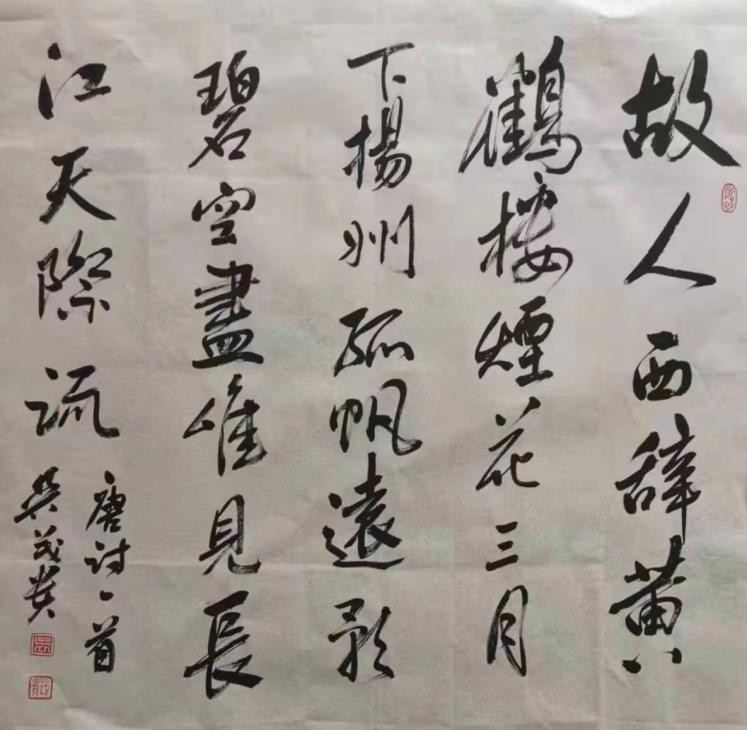 故人西辞黄
鶴楼煙花三月
下揚州孤帆遠影
碧空盡唯見長
江天際流
唐诗一首
吴茂贵